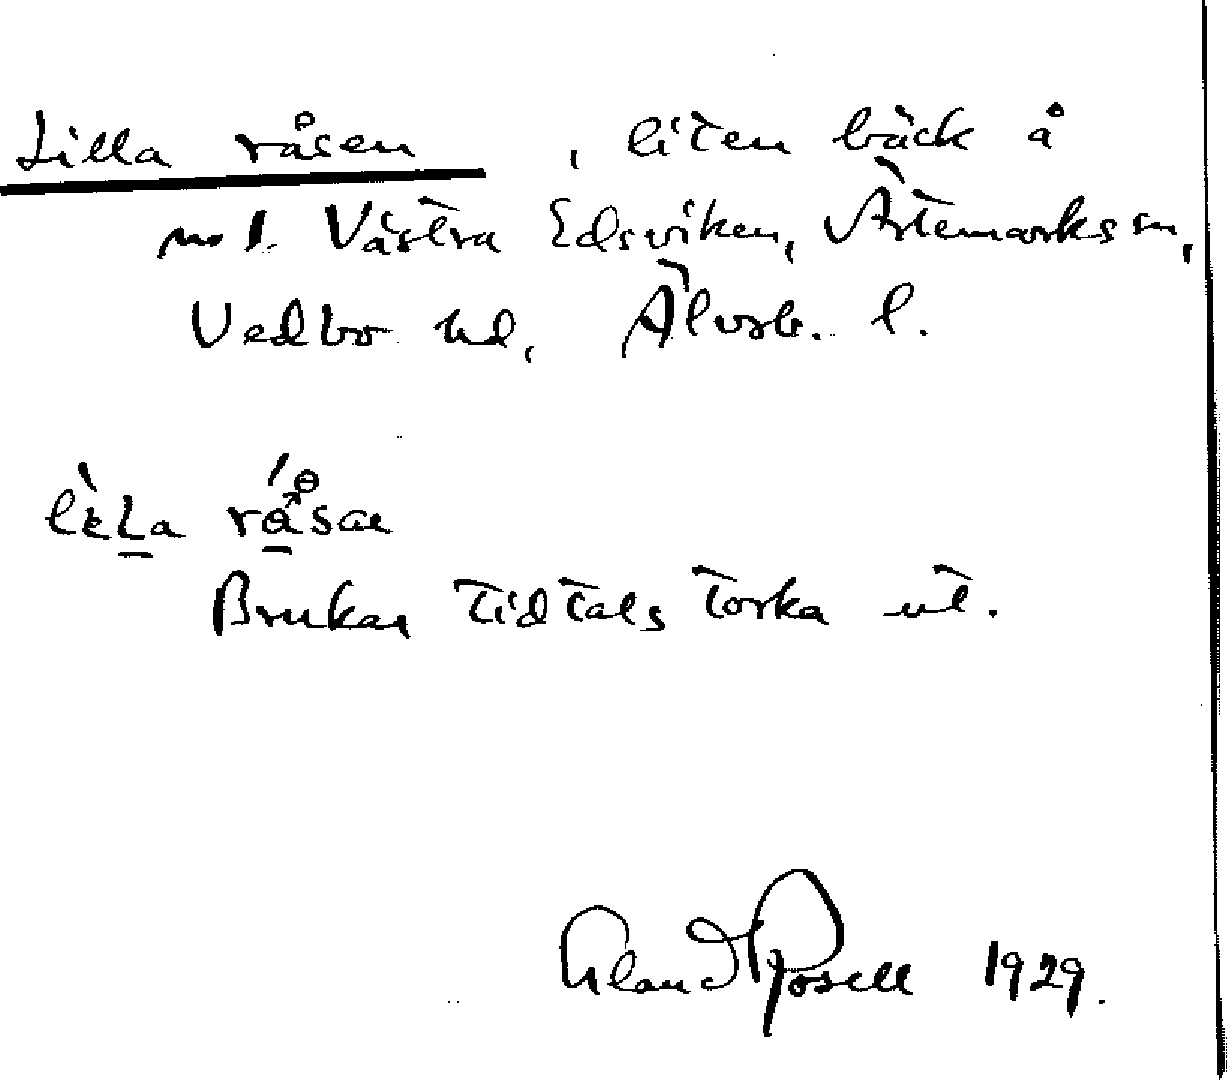 Lilla råsen , liten bäck å
no 1. Västra Edsviken, Ärtemarks sn,
Vedbo hd, Älvsb. l.
råsan
Brukar tidtals torka ut.
Erland Rosell 1929.